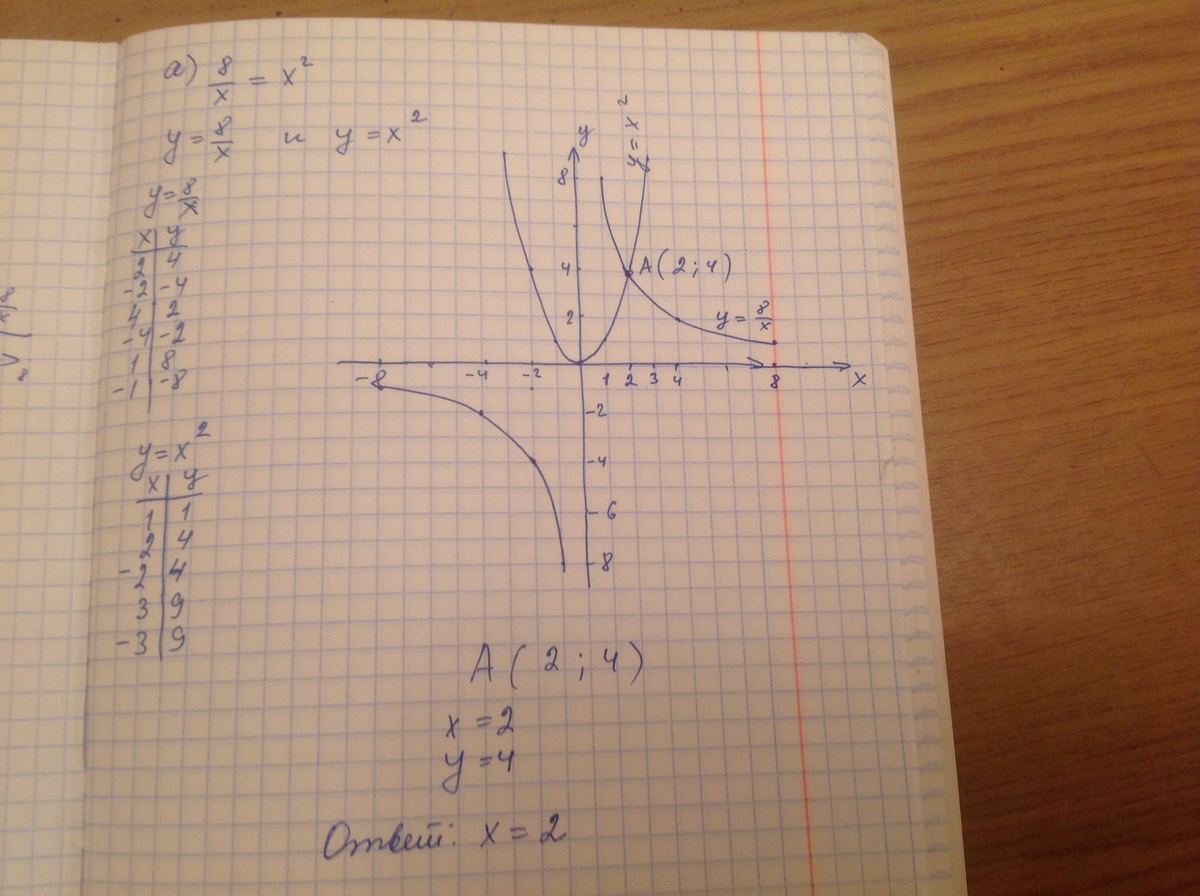 а) 8/x = x²
y = 8/x и y = x²
y = 8/x
x | y
2 | 4
-2 | -4
4 | 2
-4 | -2
1 | 8
-1 | -8
y = x²
x | y
1 | 1
2 | 4
-2 | 4
3 | 9
-3 | 9
y
y = x²
8
4
A(2;4)
2
y = 8/x
-8 -4 -2 1 2 3 4 8 x
-2
-4
-6
-8
A(2;4)
x = 2
y = 4
Ответ: x = 2